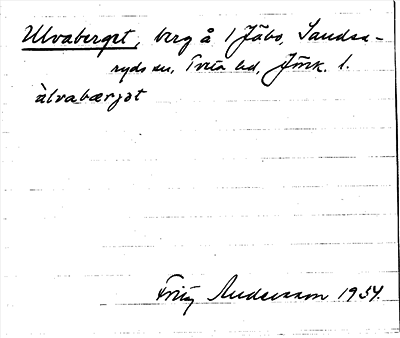 Ulvaberget, berg å 1 Jäbo, Sandse-
ryds sn, Tveta hd, Jönk. l.
ùlvabærjət
Fritz Andersson 1934.